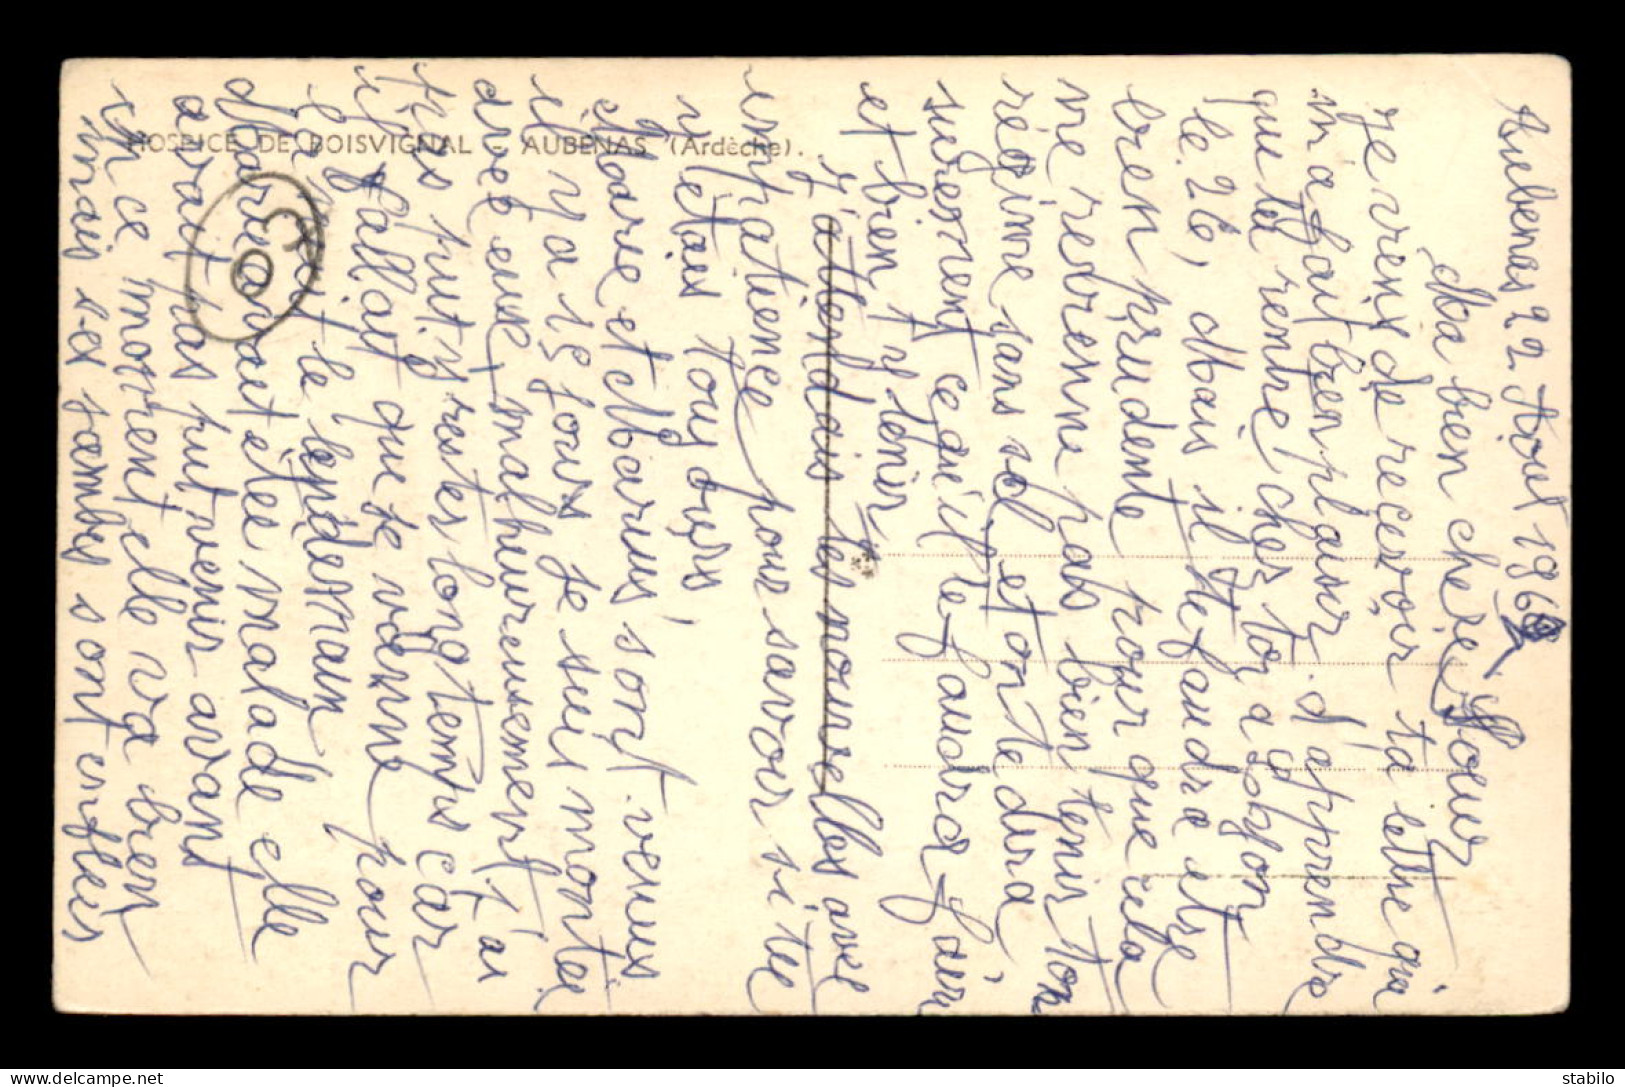 Aubenas 22 Aout 196
Ma bien chérie Soeur
Je viens de recevoir ta lettre qui
m'a fait bien plaisir d'apprendre
que tu rentre chez toi a
le 26, Mais il te faudra etre
bien prudente pour que cela
ne redvienne pas bien tenir ton
régime sans sel et on te dira
surement ce qu'il te faudra fair
et bien te tenir
J'attendais tes nouvelles avec
impatience pour savoir si tu
y etais toujours,
Marie et Marius sont venus
il y a 15 jours je suis montée
avec eux, malheureusement j'ai
pas put y rester longtemps car
il fallait que je vienne pour
le lendemain
Marie avait etée malade elle
avait pas put venir avant
en ce moment elle va bien
mais ses jambes sont enflées
HOSPICE DE BOISVIGNAL - AUBENAS (Ardèche).
03
stabilo